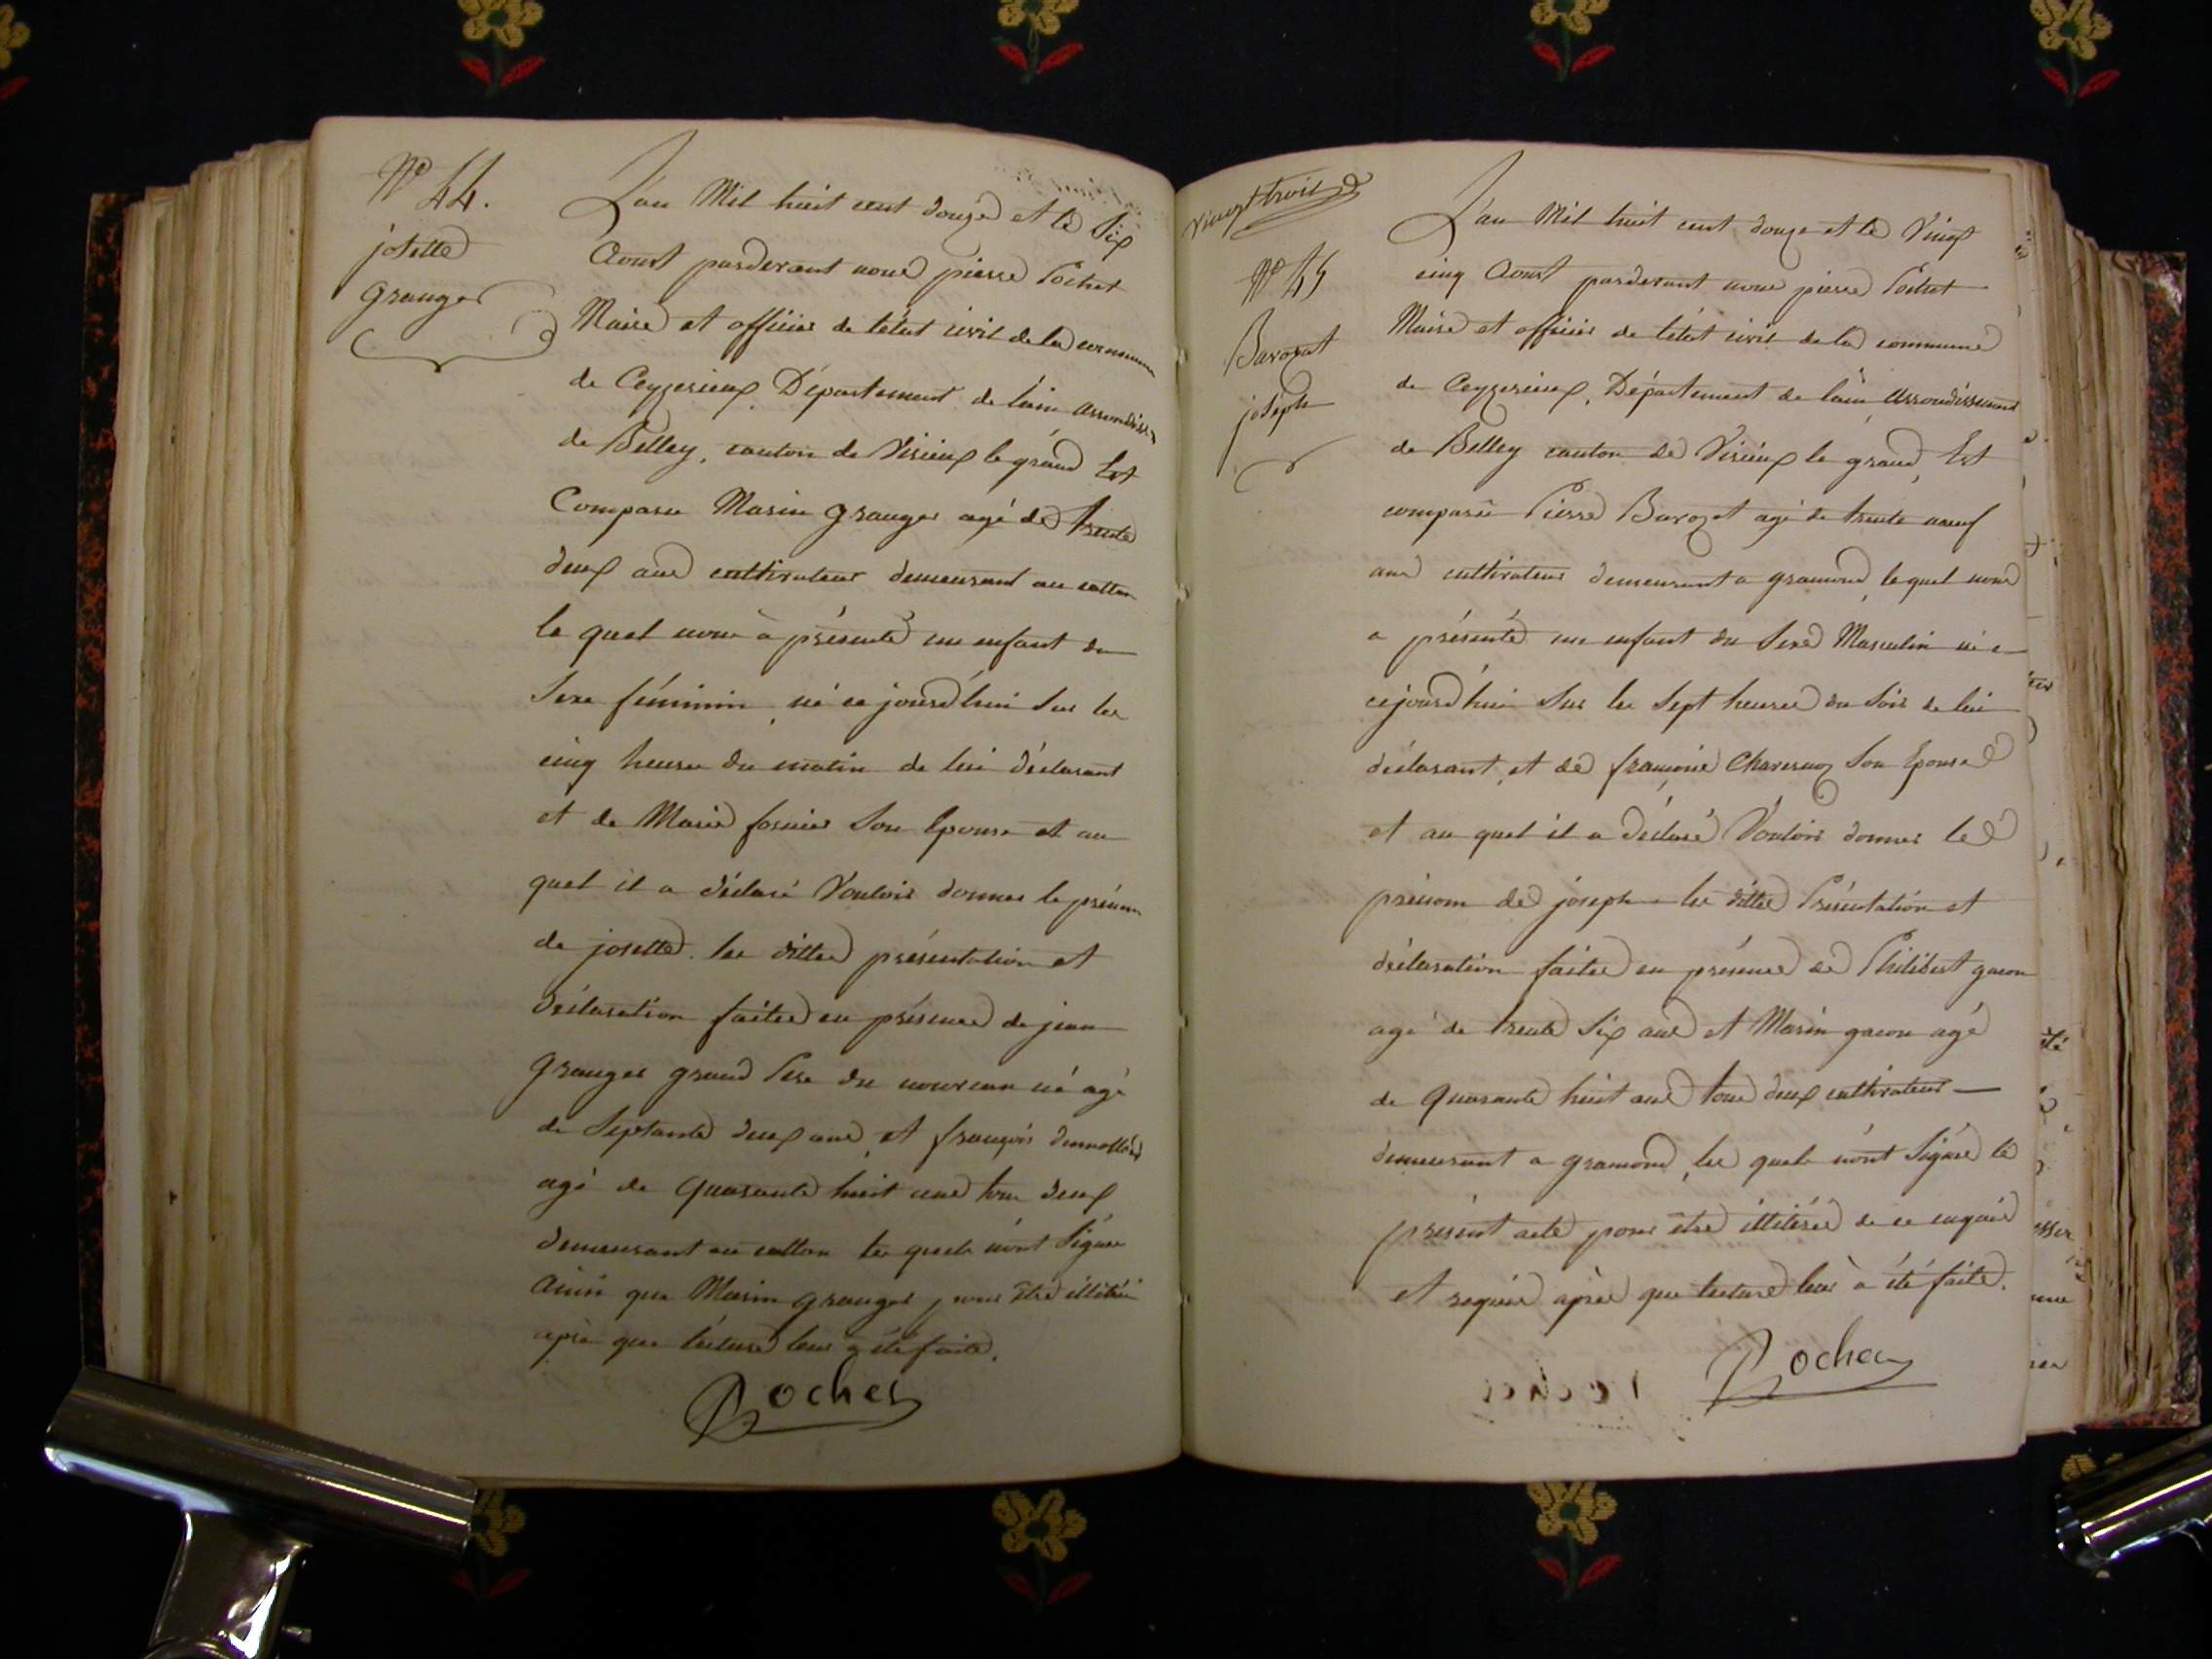 N° 44.
josette
granger
L'an Mil huit cent douze et le Six
Aoust pardevant nous pierre Pochet
Maire et officier de l'état civil de la commune
de Ceyzerieux, Département de l'ain arrondiss
de Belley, canton de Virieux le grand Est
Comparu Marin granger agé de trente
deux ans cultivateur demeurant au catton
le quel nous à présenté un enfant du
Sexe féminin, né ce jourd'hui Sur les
cinq heures du matin de lui déclarant
et de Marie fornier Son Epouse et au
quel il a déclaré Vouloir donner le prénom
de josette. les dittes présentation et
déclaration faites en présence de jean
granger grand Pere du nouveau né agé
de Septante deux ans, et françois
agé de quarante huit ans tous deux
demeurant au catton les quels n'ont Signés
ainsi que Marin granger pour être illitéré
après que lécture leur a été faite.
Pochet
Vingt trois
N° 45
Barozat
joséph
L'an Mil huit cent douze et le Vingt
cinq Aoust pardevant nous pierre Pochet
Maire et officier de l'état civil de la commune
de Ceyzerieux, Département de l'ain arrondissement
de Belley canton de Virieux le grand, Est
comparu Pierre Barozat agé de trente neuf
ans cultivateur demeurant a gramond, le quel nous
a présenté un enfant du Sexe Masculin né
cejourd'hui Sur les Sept heures du Soir de lui
déclarant, et de françoise Charvenoz Son Epouse
et au quel il a déclaré Vouloir donner le
prénom de joseph les dittes Présentation et
déclaration faites en présence de Philibert gacon
agé de trente Six ans et Marin gacon agé
de quarante huit ans tous deux cultivateurs
demeurant a gramond, les quels n'ont Signés le
présent acte pour être illitérés de ce enquis
et requis après que lecture leur à été faite.
Pochet